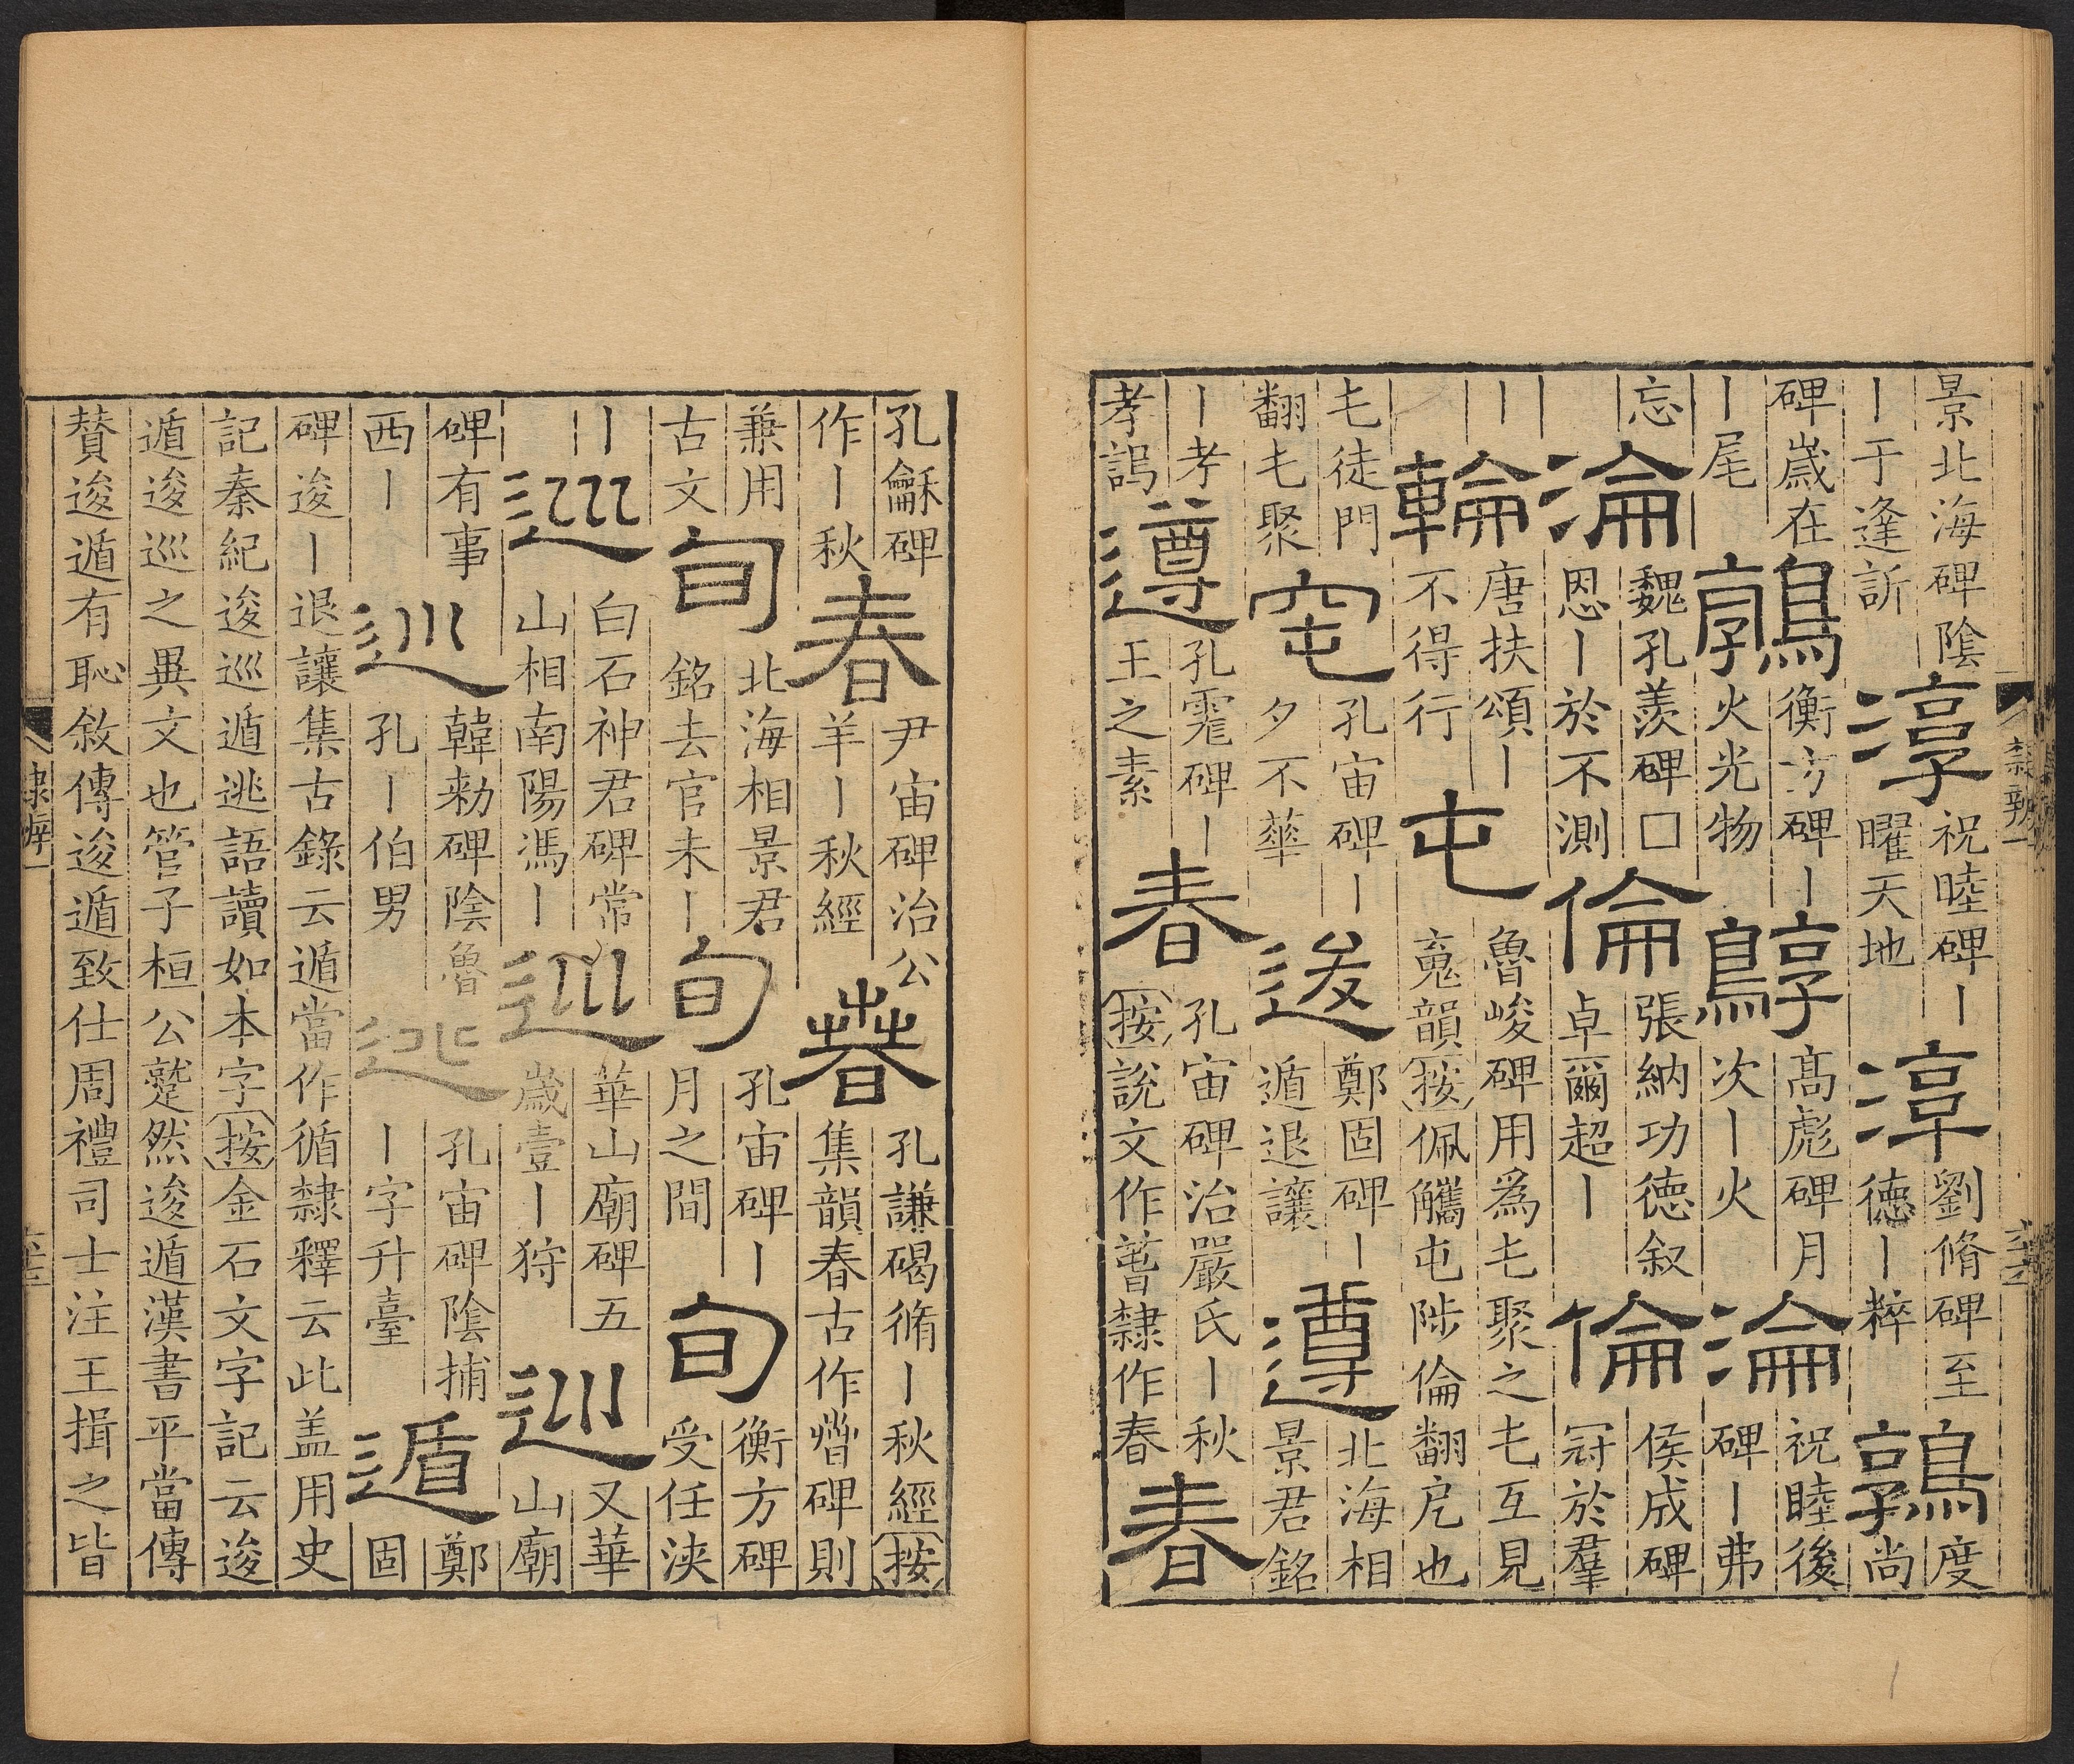 景北海碑陰丨于逢訢淳祝睦碑丨曜天地淳劉脩碑至德丨粹鶉度尚
碑歲在丨尾鶉衡方碑丨火光物鶉高彪碑月次丨火淪祝睦後碑丨弗
忘淪魏孔羨碑□恩丨於不測倫張納功德叙卓爾超丨倫侯成碑冠於羣
丨輪唐扶頌丨不得行屯魯峻碑用爲乇聚之乇互見䰟韻按佩觿屯陟倫翻戹也
乇徒門翻乇聚窀孔宙碑丨夕不華逡鄭固碑丨遁退讓遵北海相景君銘
丨孝孝遵孔霓碑丨王之素春孔宙碑治嚴氏丨秋按說文作萅隸作春春
孔龢碑作丨秋春尹宙碑治公羊丨秋經春孔謙碣脩丨秋經按集韻春古作旾碑則
兼用古文旬北海相景君銘去官未丨旬孔宙碑丨月之間旬衡方碑受任浹
丨巡白石神君碑常山相南陽馮丨巡華山廟碑五歲壹丨狩巡又華山廟
碑有事西丨巡韓勑碑陰魯孔丨伯男巡孔宙碑陰捕丨字升臺遁鄭固
碑逡丨退讓集古錄云遁當作循隸釋云此盖用史
記秦紀逡巡遁逃語讀如本字按金石文字記云逡
遁逡巡之異文也管子桓公蹵然逡遁漢書平當傳
贊逡遁有恥敘傳逡遁致仕周禮司士注王揖之皆